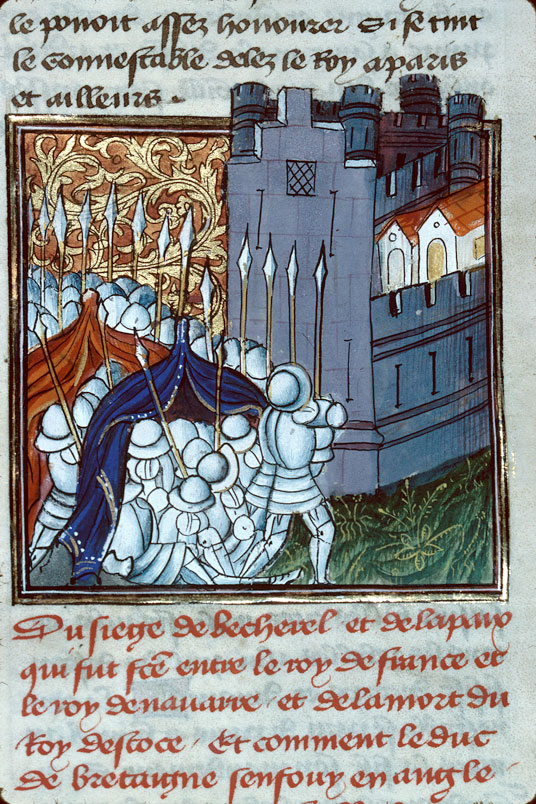 le pouoit assez honnourer Si se tint
le connestable delez le Roy a paris
et ailleurs .
Du siege de becherel et de la paix
qui fut fcē entre le roy de france et
le roy de nauarre . et de la mort du
Roy descoce . Et comment le duc
de bretaigne senfouy en angle .